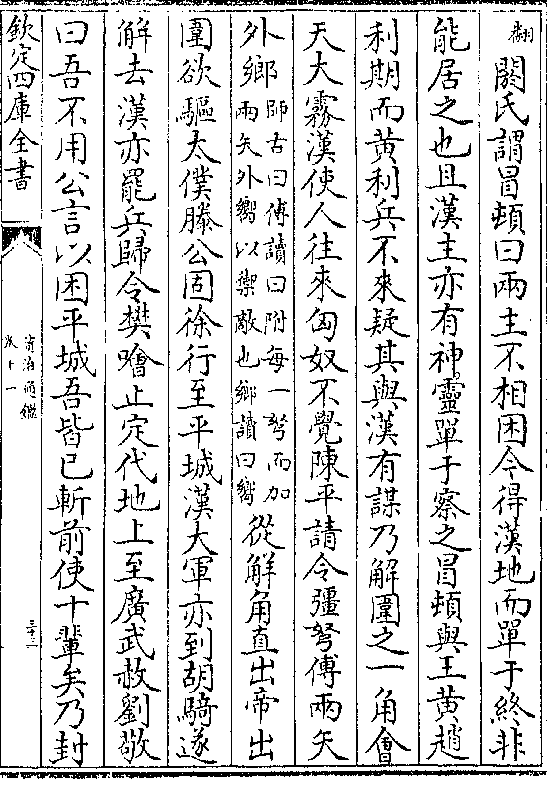 翻閼氏謂冒頓曰兩主不相困今得漢地而單于終非
能居之也且漢主亦有神靈單于察之冒頓與王黃趙
利期而黃利兵不來疑其與漢有謀乃解圍之一角會
天大霧漢使人往來匈奴不覺陳平請令彊弩傅兩矢
外鄉師古曰傅讀曰附每一弩而加兩矢外嚮以禦敵也鄉讀曰嚮從解角直出帝出
圍欲驅太僕滕公固徐行至平城漢大軍亦到胡騎遂
解去漢亦罷兵歸令樊噲止定代地上至廣武赦劉敬
曰吾不用公言以困平城吾皆已斬前使十輩矣乃封
欽定四庫全書
資治通鑑
卷十一
三十三